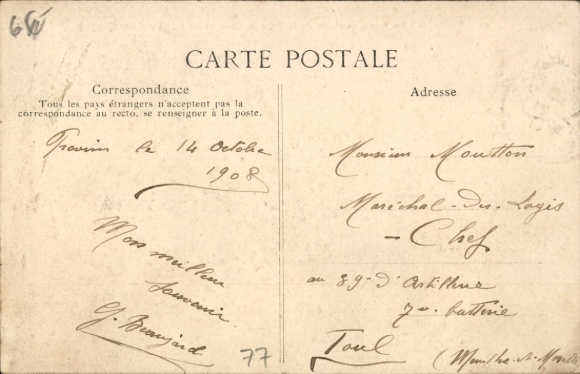 CARTE POSTALE
Correspondance
Tous les pays étrangers n'acceptent pas la
correspondance au recto, se renseigner à la poste.
Provins le 14 Octobre
1908
Mon meilleur
souvenir
G.
77
Adresse
Monsieur Moutton
Maréchal-des-Logis
- Chef
au 39e d'Artillerie
7e batterie
Toul
(Meurthe-et-Moselle